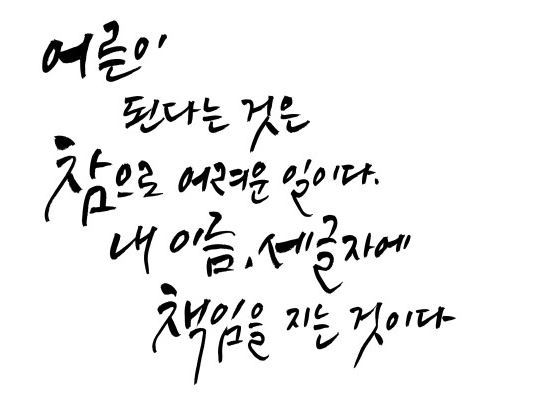 어른이
된다는 것은
참으로 어려운 일이다.
내 이름, 세글자에
책임을 지는 것이다